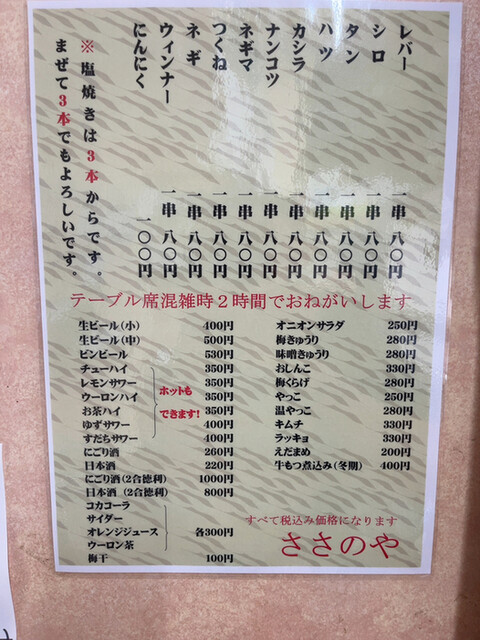 レバー 一串 八〇円
シロ 一串 八〇円
タン 一串 八〇円
ハツ 一串 八〇円
カシラ 一串 八〇円
ナンコツ 一串 八〇円
ネギマ 一串 八〇円
つくね 一串 八〇円
ネギ 一串 八〇円
ウィンナー 一串 八〇円
にんにく 一〇〇円
※塩焼きは3本からです。
まぜて3本でもよろしいです。
テーブル席混雑時2時間でおねがいします
生ビール(小) 400円
生ビール(中) 500円
ビンビール 530円
チューハイ 350円
レモンサワー 350円
ウーロンハイ 350円
お茶ハイ 350円
ゆずサワー 400円
すだちサワー 400円
ホットも
できます!
にごり酒 260円
日本酒 220円
にごり酒(2合徳利) 1000円
日本酒(2合徳利) 800円
コカコーラ
サイダー
オレンジジュース 各300円
ウーロン茶
梅干 100円
オニオンサラダ 250円
梅きゅうり 280円
味噌きゅうり 280円
おしんこ 330円
梅くらげ 280円
やっこ 250円
温やっこ 280円
キムチ 330円
ラッキョ 330円
えだまめ 200円
牛もつ煮込み(冬期) 400円
すべて税込み価格になります
ささのや